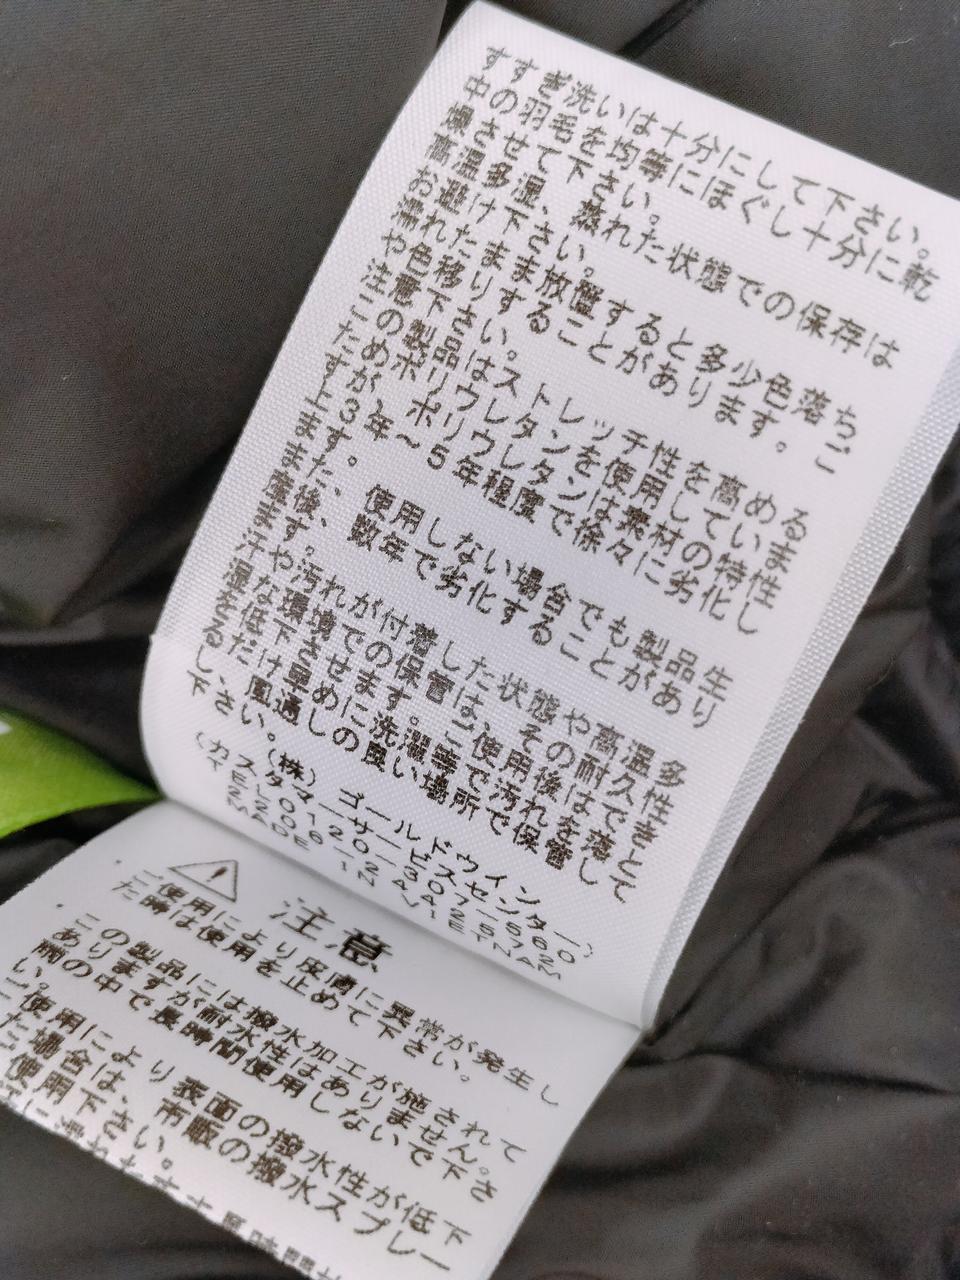 すすぎ洗いは十分にして下さい。
中の羽毛を均等にほぐし十分に乾
燥させて下さい。
高温多湿、蒸れた状態での保存は
お避け下さい。
濡れたまま放置すると多少色落ち
や色移りすることがあります。ご
注意下さい。
この製品はストレッチ性を高める
ためポリウレタンを使用していま
すが、ポリウレタンは素材の特性
上3年～5年程度で徐々に劣化し
ます。
また、使用しない場合でも製品生
産後、数年で劣化することがあり
ます。
汗や汚れが付着した状態や高温多
湿な環境での保管は、その耐久性
を低下させます。ご使用後はでき
るだけ早めに洗濯等で汚れを落と
し、風通しの良い場所で保管して
下さい。
(株)ゴールドウイン
(カスタマーサービスセンター)
0120-307-560
MADE IN VIETNAM
注意
ご使用により皮膚に異常が発生し
た時は使用を止めて下さい。
この製品には撥水加工が施されて
ありますが耐水性はありません。
雨の中で長時間使用しないで下さ
い。
ご使用により表面の撥水性が低下
した場合は、市販の撥水スプレー
ご使用下さい。